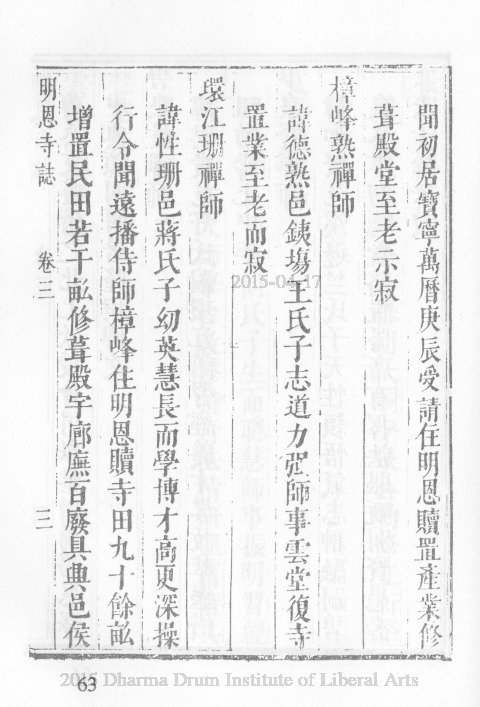 聞初居寶寧萬曆庚辰受請住明恩贖置產業修
葺殿堂至老示寂
樟峰熟禪師
諱德熟邑銕塲王氏子志道力强師事雲堂復寺
置業至老而寂
環江珊禪師
諱性珊邑蔣氏子幼英慧長而學博才高更深操
行令聞遠播侍師樟峰住明恩贖寺田九十餘畝
增置民田若干畝修葺殿宇廊廡百廢具興邑侯
明恩寺誌 卷三 三
2015-04-17
63
2015 Dharma Drum Institute of Liberal Arts